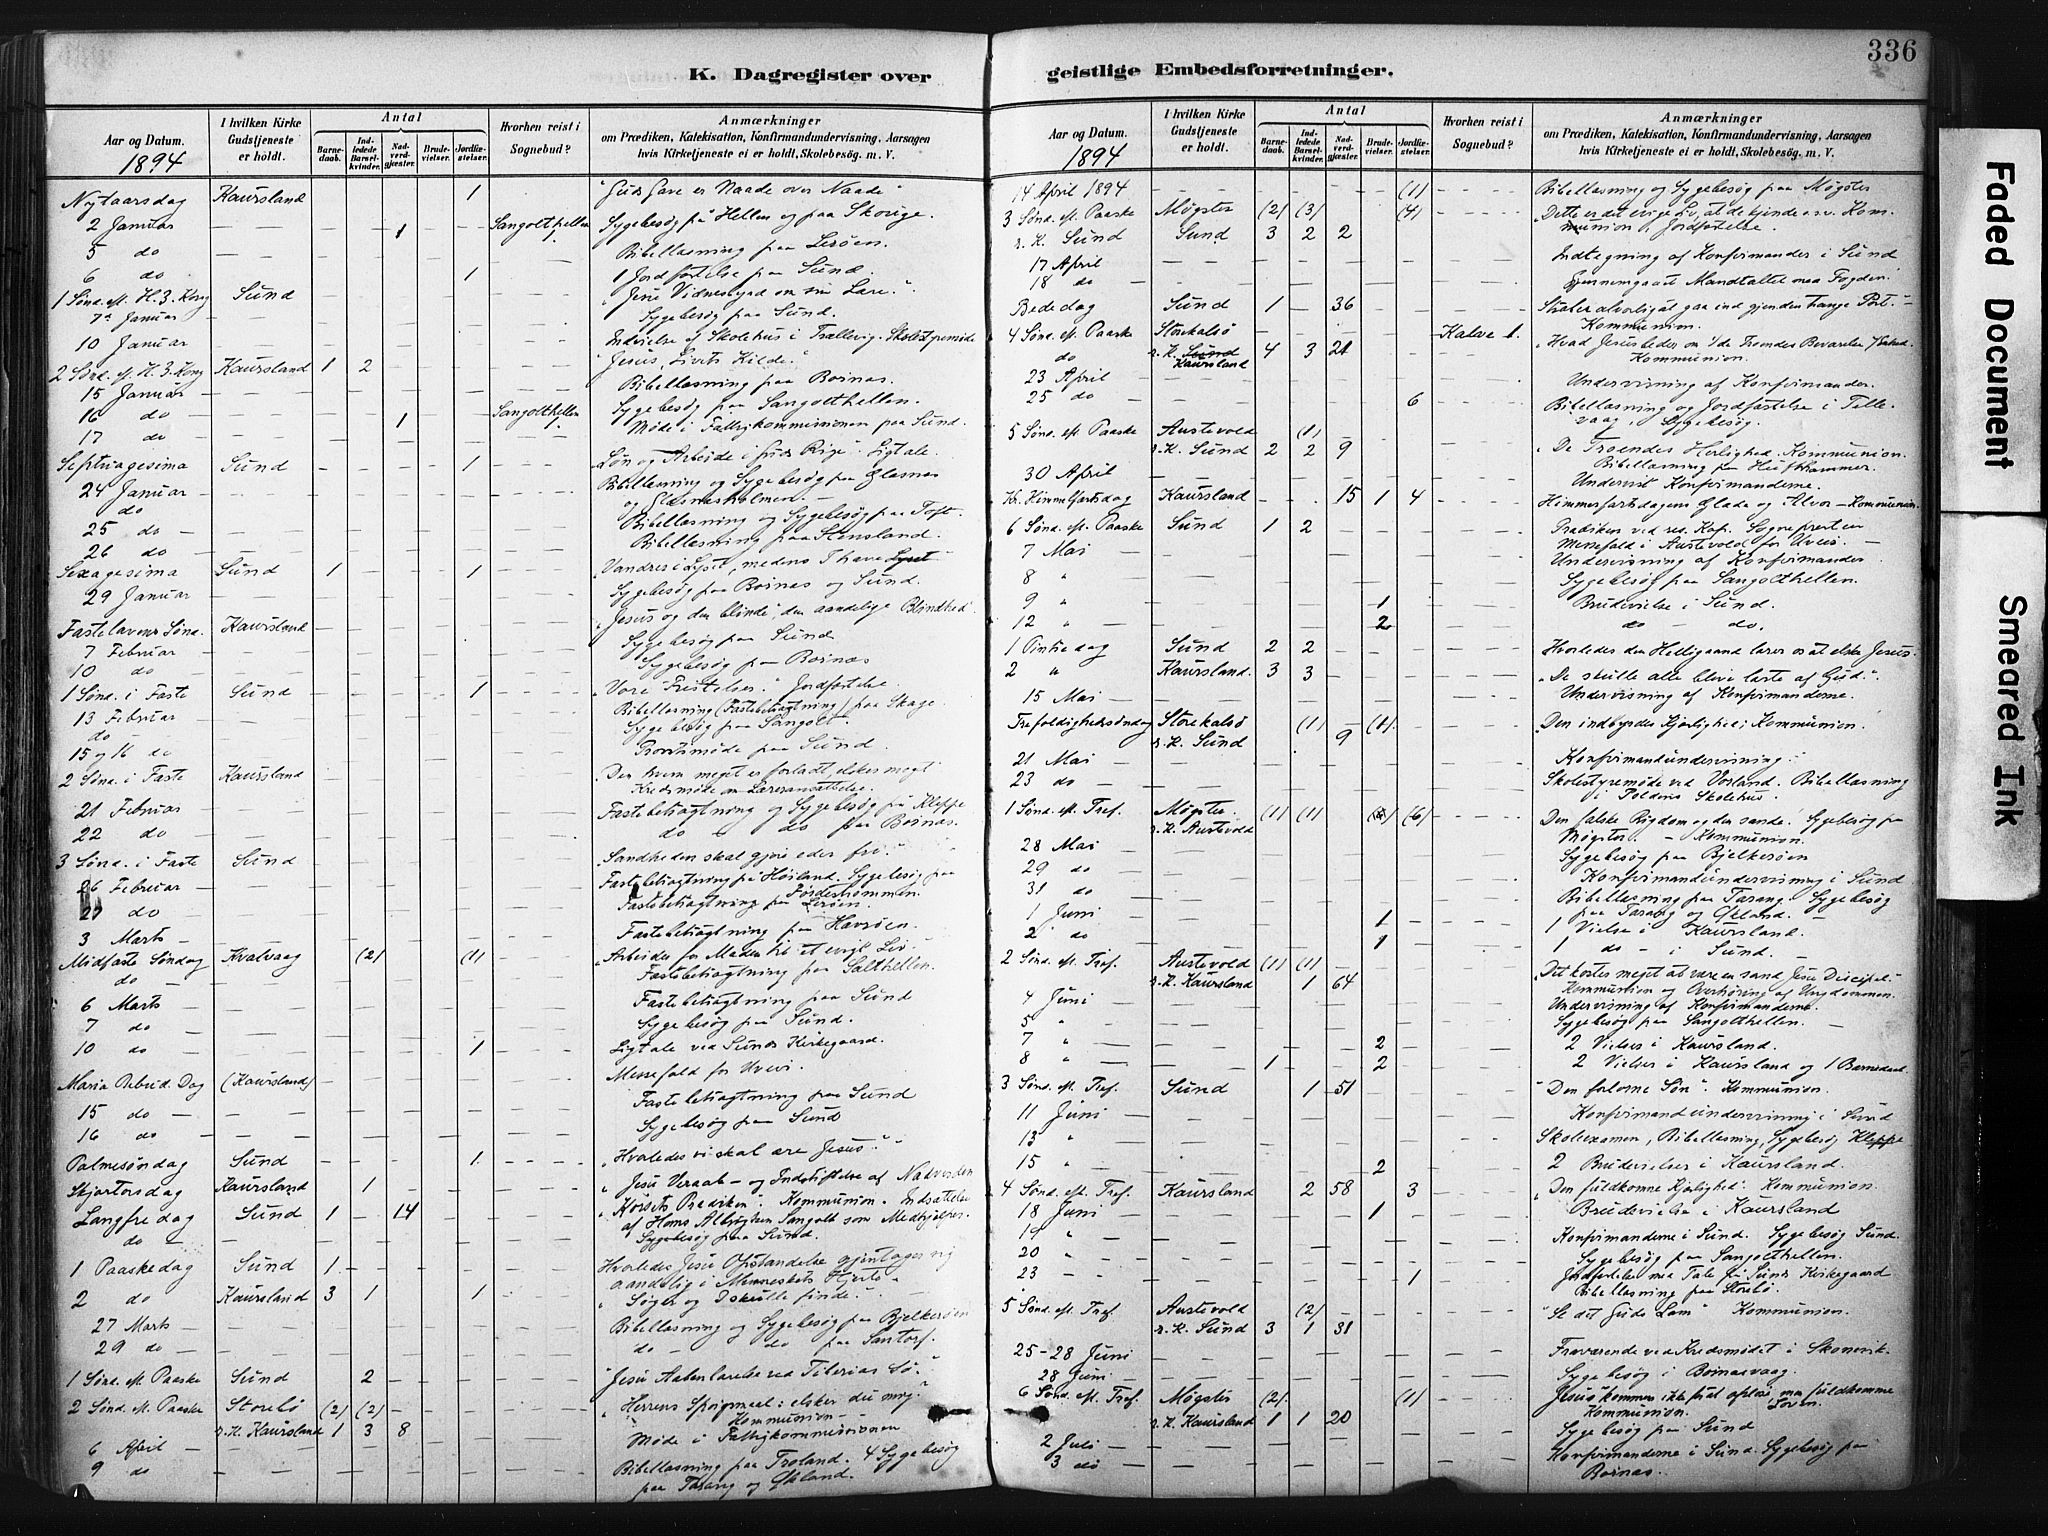 336
K. Dagregister over
geistlige Embedsforretninger.
Aar og Datum.
1894
I hvilken Kirke Gudstjeneste er holdt.
Antal
Barnedaab.
Indledede Barselkvinder.
Nadverdgjester.
Brudevielser.
Jordfæstelser.
Hvorhen reist i Sognebud?
Anmærkninger
om Prædiken, Katekisation, Konfirmandundervisning, Aarsagen
hvis Kirketjeneste ei er holdt, Skolebesøg. m. V.
Nytaarsdag Kaursland — — — — 1 — "Guds Gave er Naade over Naade"
2 Januar — — — 1 — — Sangolthellen 1. Sygebesøg på Hellen og paa Skoige.
5 do — — — Bibellæsning paa Lerøen.
6 do — — — 1 — 1 Jordfæstelse paa Sund.
1 Sønd. eft. H. 3. Kong Sund — "Jesu Vidnesbyrd om sin Lære."
7de Januar — Sygebesøg paa Sund.
10 Januar — Indvielse af Skolehus i Trællevig. Skolestyremøde
2 Sønd. eft. H. 3. Kong Kaursland 1 2 — "Jesus, Livets Kilde."
15 Januar — Bibellæsning paa Bornæs.
16 do — 1 — Sangolthellen 1. Sygebesøg paa Sangolthellen.
17 do — Møde i Fattigkommissionen paa Sund.
Septuagesima Sund — 1 — Løn og Arbeide i Guds Rige". Ligtale
24 Januar — Bibellæsning og Sygebesøg paa Glæsnæs
do — og Glæsnæsholmen. —
25 do — Bibellæsning og Sygebesøg paa Toft.
26 do — Bibellæsning paa Stensland.
Sexagesima Sund 1 — 1 — "Vandrer i Lyset, medens I have Lyset
29 Januar — Sygebesøg paa Bornæs og Sund.
Fastelavens Sønd. Kaursland — "Jesus og den blinde", den aandelige Blindhed"
7 Februar — Sygebesøg paa Sund
10 do — Sygebesøg paa Bornæs
1 Sønd. i Faste Sund — 1 — "Vore Fristelser." Jordfæstelse.
13 Februar — Bibellæsning (Fastebetragtning) paa Skage.
do — Sygebesøg paa Sangolt.
15 og 16 do — Provstimøde paa Sund.
2 Sønd. i Faste Kaursland — "Den hvem meget er forladt, elsker meget
21 Februar — Kredsmøde om Læreransættelse.
22 do — Fastebetragtning og Sygebesøg på Kleppe
do — do paa Bornæs.
3 Sønd. i Faste Sund — "Sandheden skal gjøre eder fri."
26 Februar — Fastebetragtning på Høiland. Sygebesøg paa
Fordestrømmen.
27 do — Fastebetragtning paa Lerøen.
3 Marts — Fastebetragtning paa Havrøen.
Midfaste Søndag Kvalvaag — (2) — (1) — "Arbeider for Maden til et evigt Liv."
do — Fastebetragtning paa Salthellen.
6 Marts — Fastebetragtning paa Sund
7 do — Sygebesøg paa Sund.
10 do — 1 — Ligtale ved Sunds Kirkegaard.
Maria Bebud. Dag (Kaursland) — Messefald for Uveir.
15 do — Fastebetragtning paa Sund
16 do — Sygebesøg paa Sund
Palmesøndag Sund — 1 — "Hvorledes vi skal ære Jesus".
Skjærtorsdag Kaursland — 1 — "Jesu Veraab — og Indstiftelse af Nadverden
Langfredag Sund 1 — 14 — "Korsets Prædiken". Kommunion. Indsættelse
do — af Hans Albrigtsen Sangolt som Medhjælper.
Sygebesøg paa Sund.
1 Paaskedag Sund 1 — Hvorledes Jesu Opstandelse gjentager sig
aandelig i Menneskets Hjerte."
2 do Kaursland 3 1 — 1 — "Søger og I skulle finde."
27 Marts — Bibellæsning og Sygebesøg paa Bjelkerøen
29 do — do — do paa Santorf.
1 Sønd. eft. Paaske Sund — 2 — "Jesu Aabenbarelse ved Tiberias Sø."
2 Sønd. eft. Paaske Storebø (2) (2) — "Herrens Spørgsmaal: elsker du mig."
r. K. Kaursland 1 3 8 — Kommunion —
6 April — Møde i Fattigkommissionen
9 do — Bibellæsning paa Troland. 4 Sygebesøg
paa Tarang og Økland.
Aar og Datum.
1894
I hvilken Kirke Gudstjeneste er holdt.
Antal
Barnedaab.
Indledede Barselkvinder.
Nadverdgjester.
Brudevielser.
Jordfæstelser.
Hvorhen reist i Sognebud?
Anmærkninger
om Prædiken, Katekisation, Konfirmandundervisning, Aarsagen
hvis Kirketjeneste ei er holdt, Skolebesøg. m. V.
14 April 1894 — (1) — Bibellæsning og Sygebesøg paa Møgster
3 Sønd. eft. Paaske Møgster (2) (3) — (4) — "Dette er det evige Liv, at de kjende osv. Kom-
r. K. Sund Sund 3 2 2 — munion. Jordfæstelse.
17 April — Indtegning af Konfirmander i Sund
18 do — Gjennemgaaet Mandtallet med Fogden.
Bededag Sund 1 — 36 — Stræber alvorligt at gaa ind gjennem den trange Port."
Kommunion.
4 Sønd. eft. Paaske Storekalsø — Kalve 1. "Hvad Jesus beder om i de Troendes Bevarelse
do r. K. Sund Kaursland 4 3 21 — Kommunion.
23 April — Undervisning af Konfirmander.
25 do — 6 — Bibellæsning og Jordfæstelse i Telle-
vaag, Sygebesøg.
5 Sønd. eft. Paaske Austevold — (1) — "De Troendes Herlighed. Kommunion.
r. K. Sund 2 2 9 — Bibellæsning paa Hufthammer.
30 April — Undervist Konfirmanderne.
Kr. Himmelfartsdag Kaursland — 15 1 4 — Himmelfartsdagens Glæde og Alvor — Kommunion.
6 Sønd. eft. Paaske Sund 1 2 — Prædiken ved res. Kap. Sognepresten
7 Mai — Messefald i Austevold for Uveir. —
Undervisning af Konfirmander
8 " — Sygebesøg paa Sangolthellen.
9 " — 1 — Brudevielse i Sund.
12 " — 2 — do — do.
1 Pintsedag Sund 2 2 — Hvorledes den Helligaand lærer os at elske Jesus.
2 " Kaursland. 3 3 — "De skulle alle blive lærte af Gud."
15 Mai — Undervisning af Konfirmanderne.
Trefoldighedssøndag Storekalsø — (1) — (1) — "Den indbyrdes Kjærlighed; Kommunion.
r. K. Sund 9
21 Mai — Konfirmandundervisning.
23 do — Skolestyremøde ved Vorland. Bibellæsning
i Toldnes Skolehus.
1 Sønd. eft. Tref. Møgster (1) (1) — (4) (6) — Den falske Rigdom og den sande. Sygebesøg paa
r. K. Austevold Møgster. — Kommunion.
28 Mai — Sygebesøg paa Bjelkerøen
29 do — Konfirmandundervisning i Sund
31 do — Bibellæsning paa Tarang. Sygebesøg
paa Tarang og Økland.
1 Juni — 1 — 1 Vielse i Kaursland.
2 do — 1 — 1 do — i Sund.
2 Sønd. eft. Tref. Austevold (1) (1) — "Det koster meget at være en sand Jesu Discipel."
r. K. Kaursland 1 64 — Kommunion og Overhøring af Ungdommen.
4 Juni — Undervisning af Konfirmanderne.
5 " — Sygebesøg paa Sangolthellen. —
7 " — 2 — 2 Vielser i Kaursland.
8 " 1 — 2 — 2 Vielser i Kaursland og 1 Barnedaab
3 Sønd. eft. Tref. Sund — 1 51 — "Den forlorne Søn". Kommunion.
11 Juni — Konfirmandundervisning i Sund
13 " — Skoleexamen, Bibellæsning, Sygebesøg Kleppe
15 " — 2 — 2 Brudevielser i Kaursland.
4 Sønd. eft. Tref. Kaursland — 2 58 — 3 — "Den fuldkomne Kjærlighed". Kommunion.
18 Juni — 1 — Brudevielse i Kaursland
19 " — Konfirmanderne i Sund. Sygebesøg Sund.
20 " — Sygebesøg paa Sangolthellen.
23 " — 1 — Jordfæstelse med Tale på Sunds Kirkegaard
Bibellæsning paa Storebø.
5 Sønd. eft. Tref. Austevold — (2) — "Se det Guds Lam" Kommunion.
r. K. Sund 3 1 31
25-28 Juni — Fraværende ved Kredsmødet i Skonevik.
28 Juni — Sygebesøg i Bornæsvaag.
6 Sønd. eft. Tref. Møgster (2) — (1) — Jesus "kommen ikke for at opløse, men fuldkomme
Loven.
r. K. Kaursland 1 1 20 — Kommunion.
2 Juli — Sygebesøg paa Sund
3 do — Konfirmanderne i Sund. Sygebesøg paa
Bornæs.
Faded Document
Smeared Ink